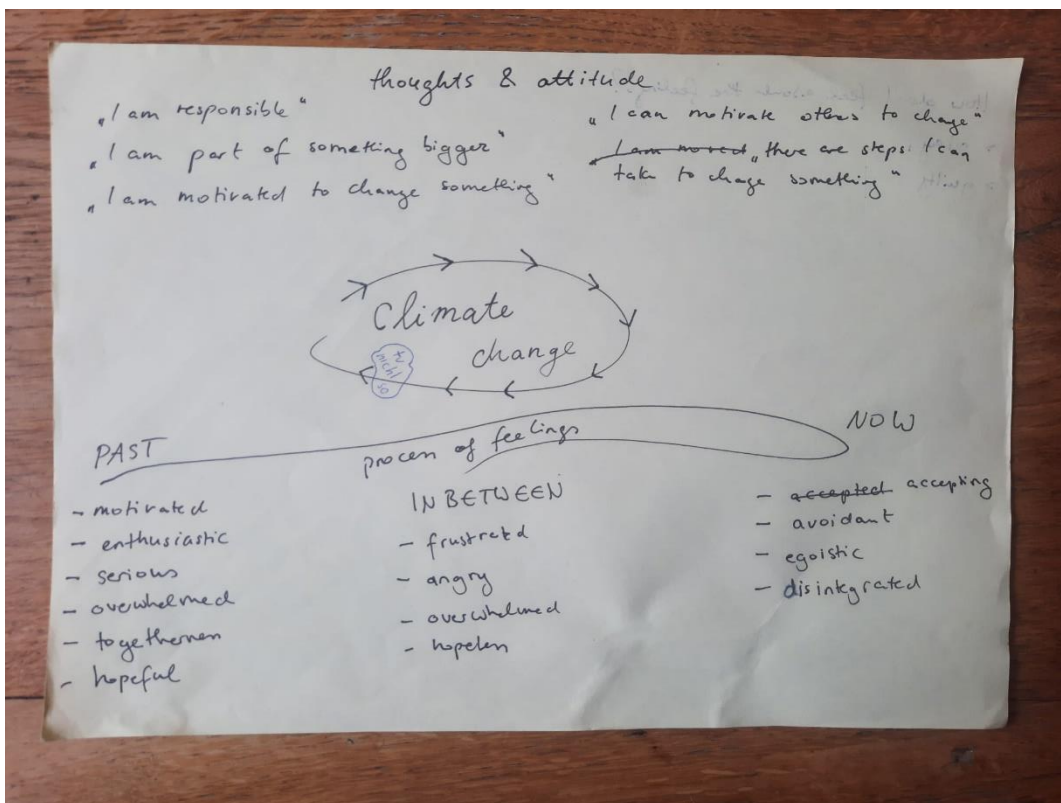 thoughts & attitude
„I am responsible“
„I am part of something bigger“
„I am motivated to change something“
„I can motivate others to change“
„I am moved „there are steps I can
take to change something“
Climate
change
tu
nicht
so
PAST
process of feelings
NOW
- motivated
- enthusiastic
- serious
- overwhelmed
- togetherness
- hopeful
IN BETWEEN
- frustrated
- angry
- overwhelmed
- hopeless
- accepted accepting
- avoidant
- egoistic
- disintegrated